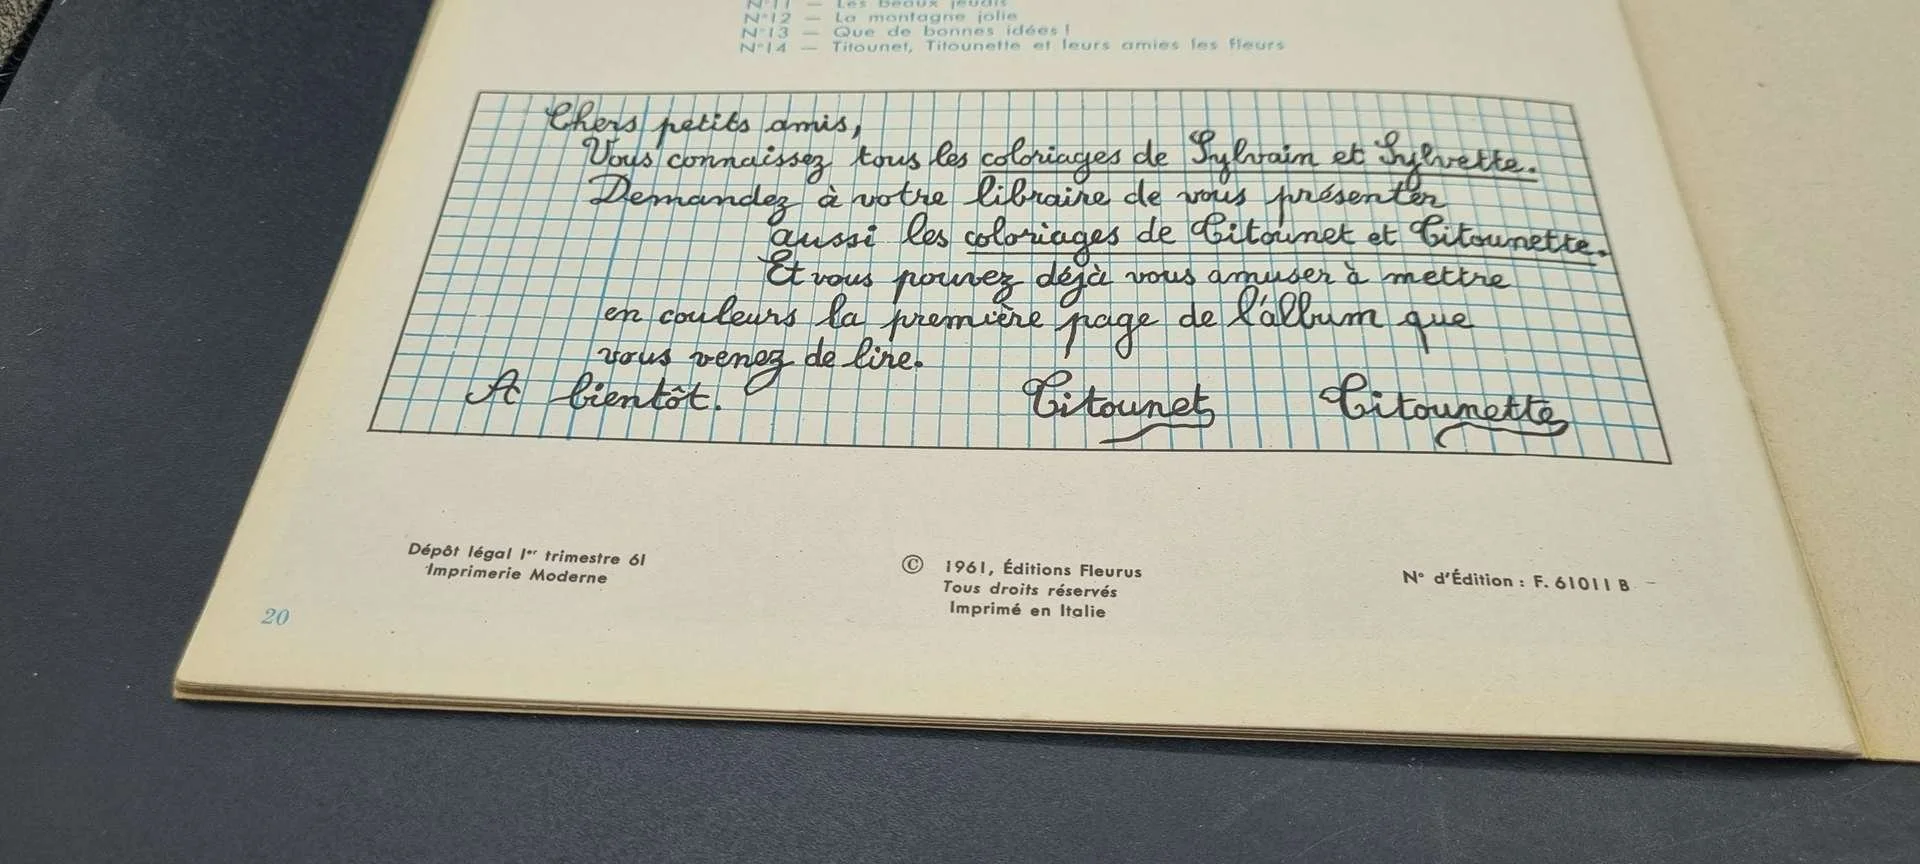 N°11 — Les beaux jeudis
N°12 — La montagne jolie
N°13 — Que de bonnes idées !
N°14 — Titounet, Titounette et leurs amies les fleurs
Chers petits amis,
Vous connaissez tous les coloriages de Sylvain et Sylvette.
Demandez à votre libraire de vous présenter
aussi les coloriages de Titounet et Titounette.
Et vous pouvez déjà vous amuser à mettre
en couleurs la première page de l'album que
vous venez de lire.
A bientôt. Titounet Titounette
Dépôt légal 1er trimestre 61
Imprimerie Moderne
© 1961, Éditions Fleurus
Tous droits réservés
Imprimé en Italie
N° d'Édition : F. 61011 B
20